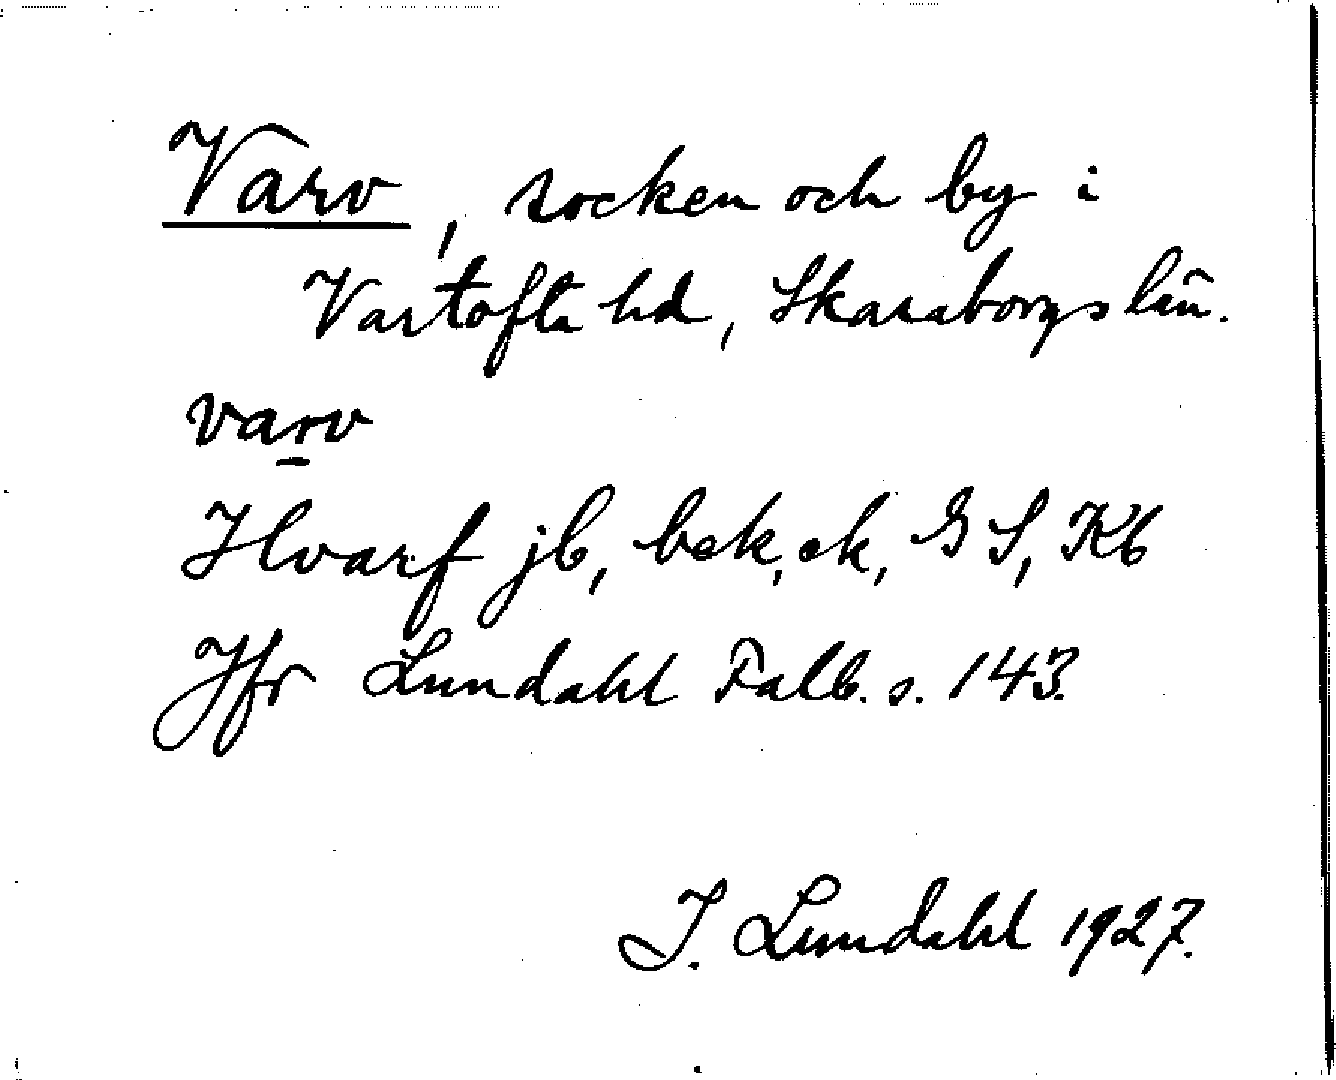 Varv, socken och by i
Vartofta hd, Skaraborgs län.
varv
Hvarf jb, bek, ek, GS, Kb
Jfr Lundahl Falb. s. 143.
I. Lundahl 1927.